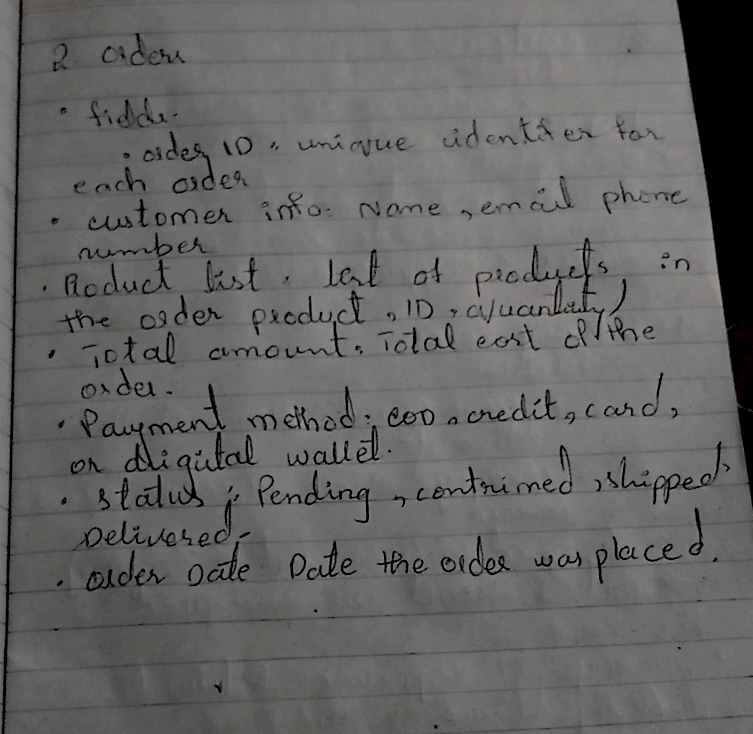 2 orders
• fields.
• order ID, unique identifier for
each order
• customer info: Name, email phone
number
• Product list, list of products in
the order product, ID, quantity)
• Total amount. Total cost of the
order.
• Payment method: COD, credit, card,
or digital wallet.
• status: Pending, contrimed, shipped,
Delivered.
• order Date Date the order was placed.